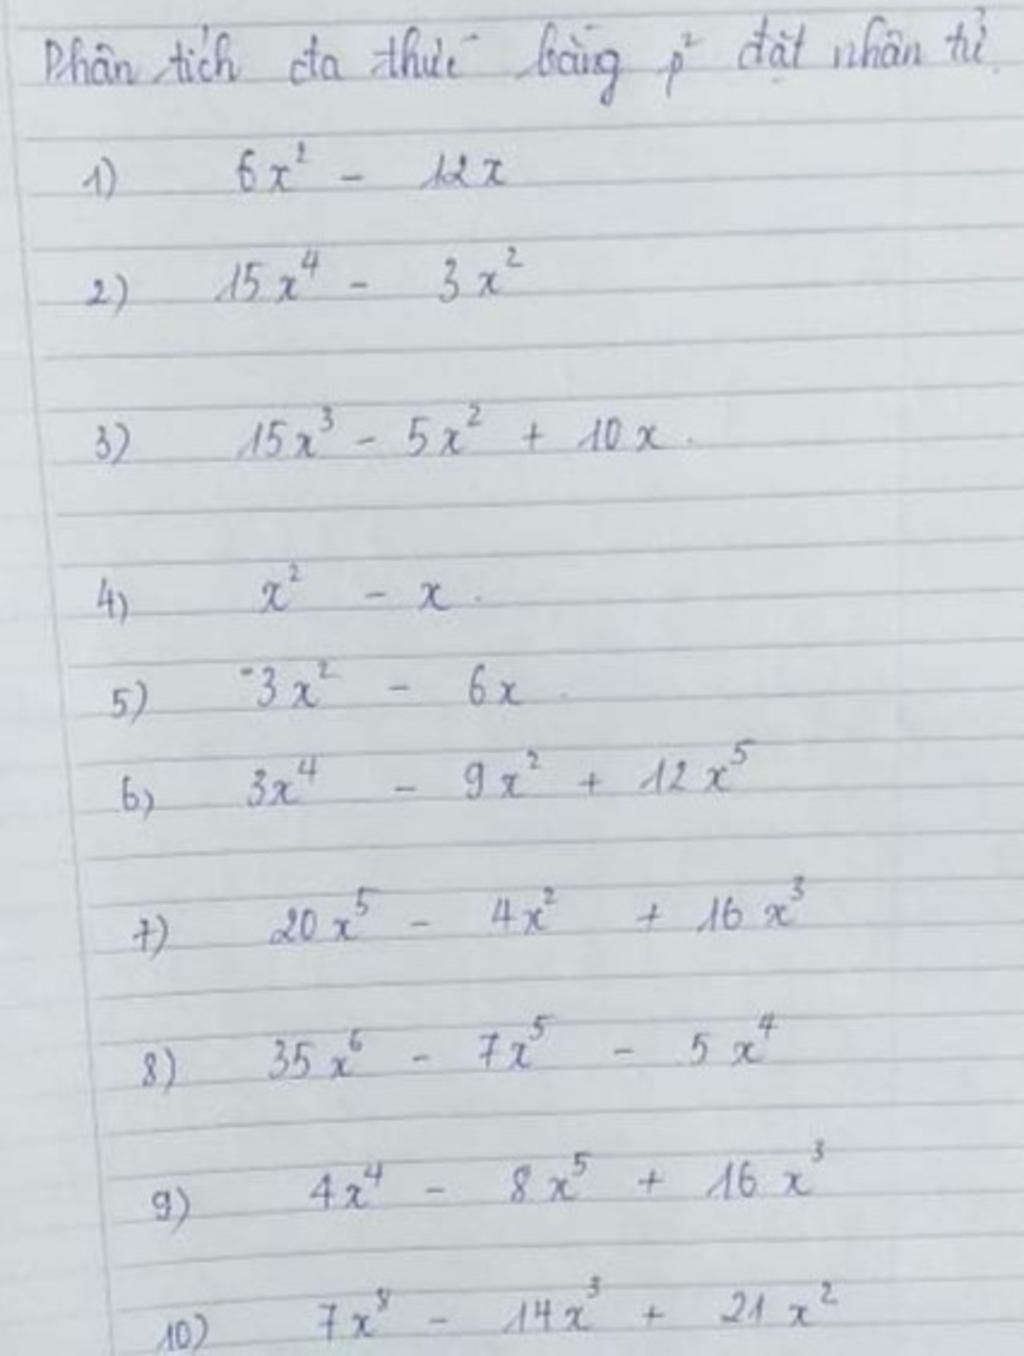 Phân tích đa thức bằng p² đặt nhân tử
1) 6x² - 12x
2) 15x⁴ - 3x²
3) 15x³ - 5x² + 10x.
4) x² - x.
5) -3x² - 6x.
6) 3x⁴ - 9x² + 12x⁵
7) 20x⁵ - 4x² + 16x³
8) 35x⁶ - 7x⁵ - 5x⁴
9) 4x⁴ - 8x⁵ + 16x³
10) 7x⁸ - 14x³ + 21x²